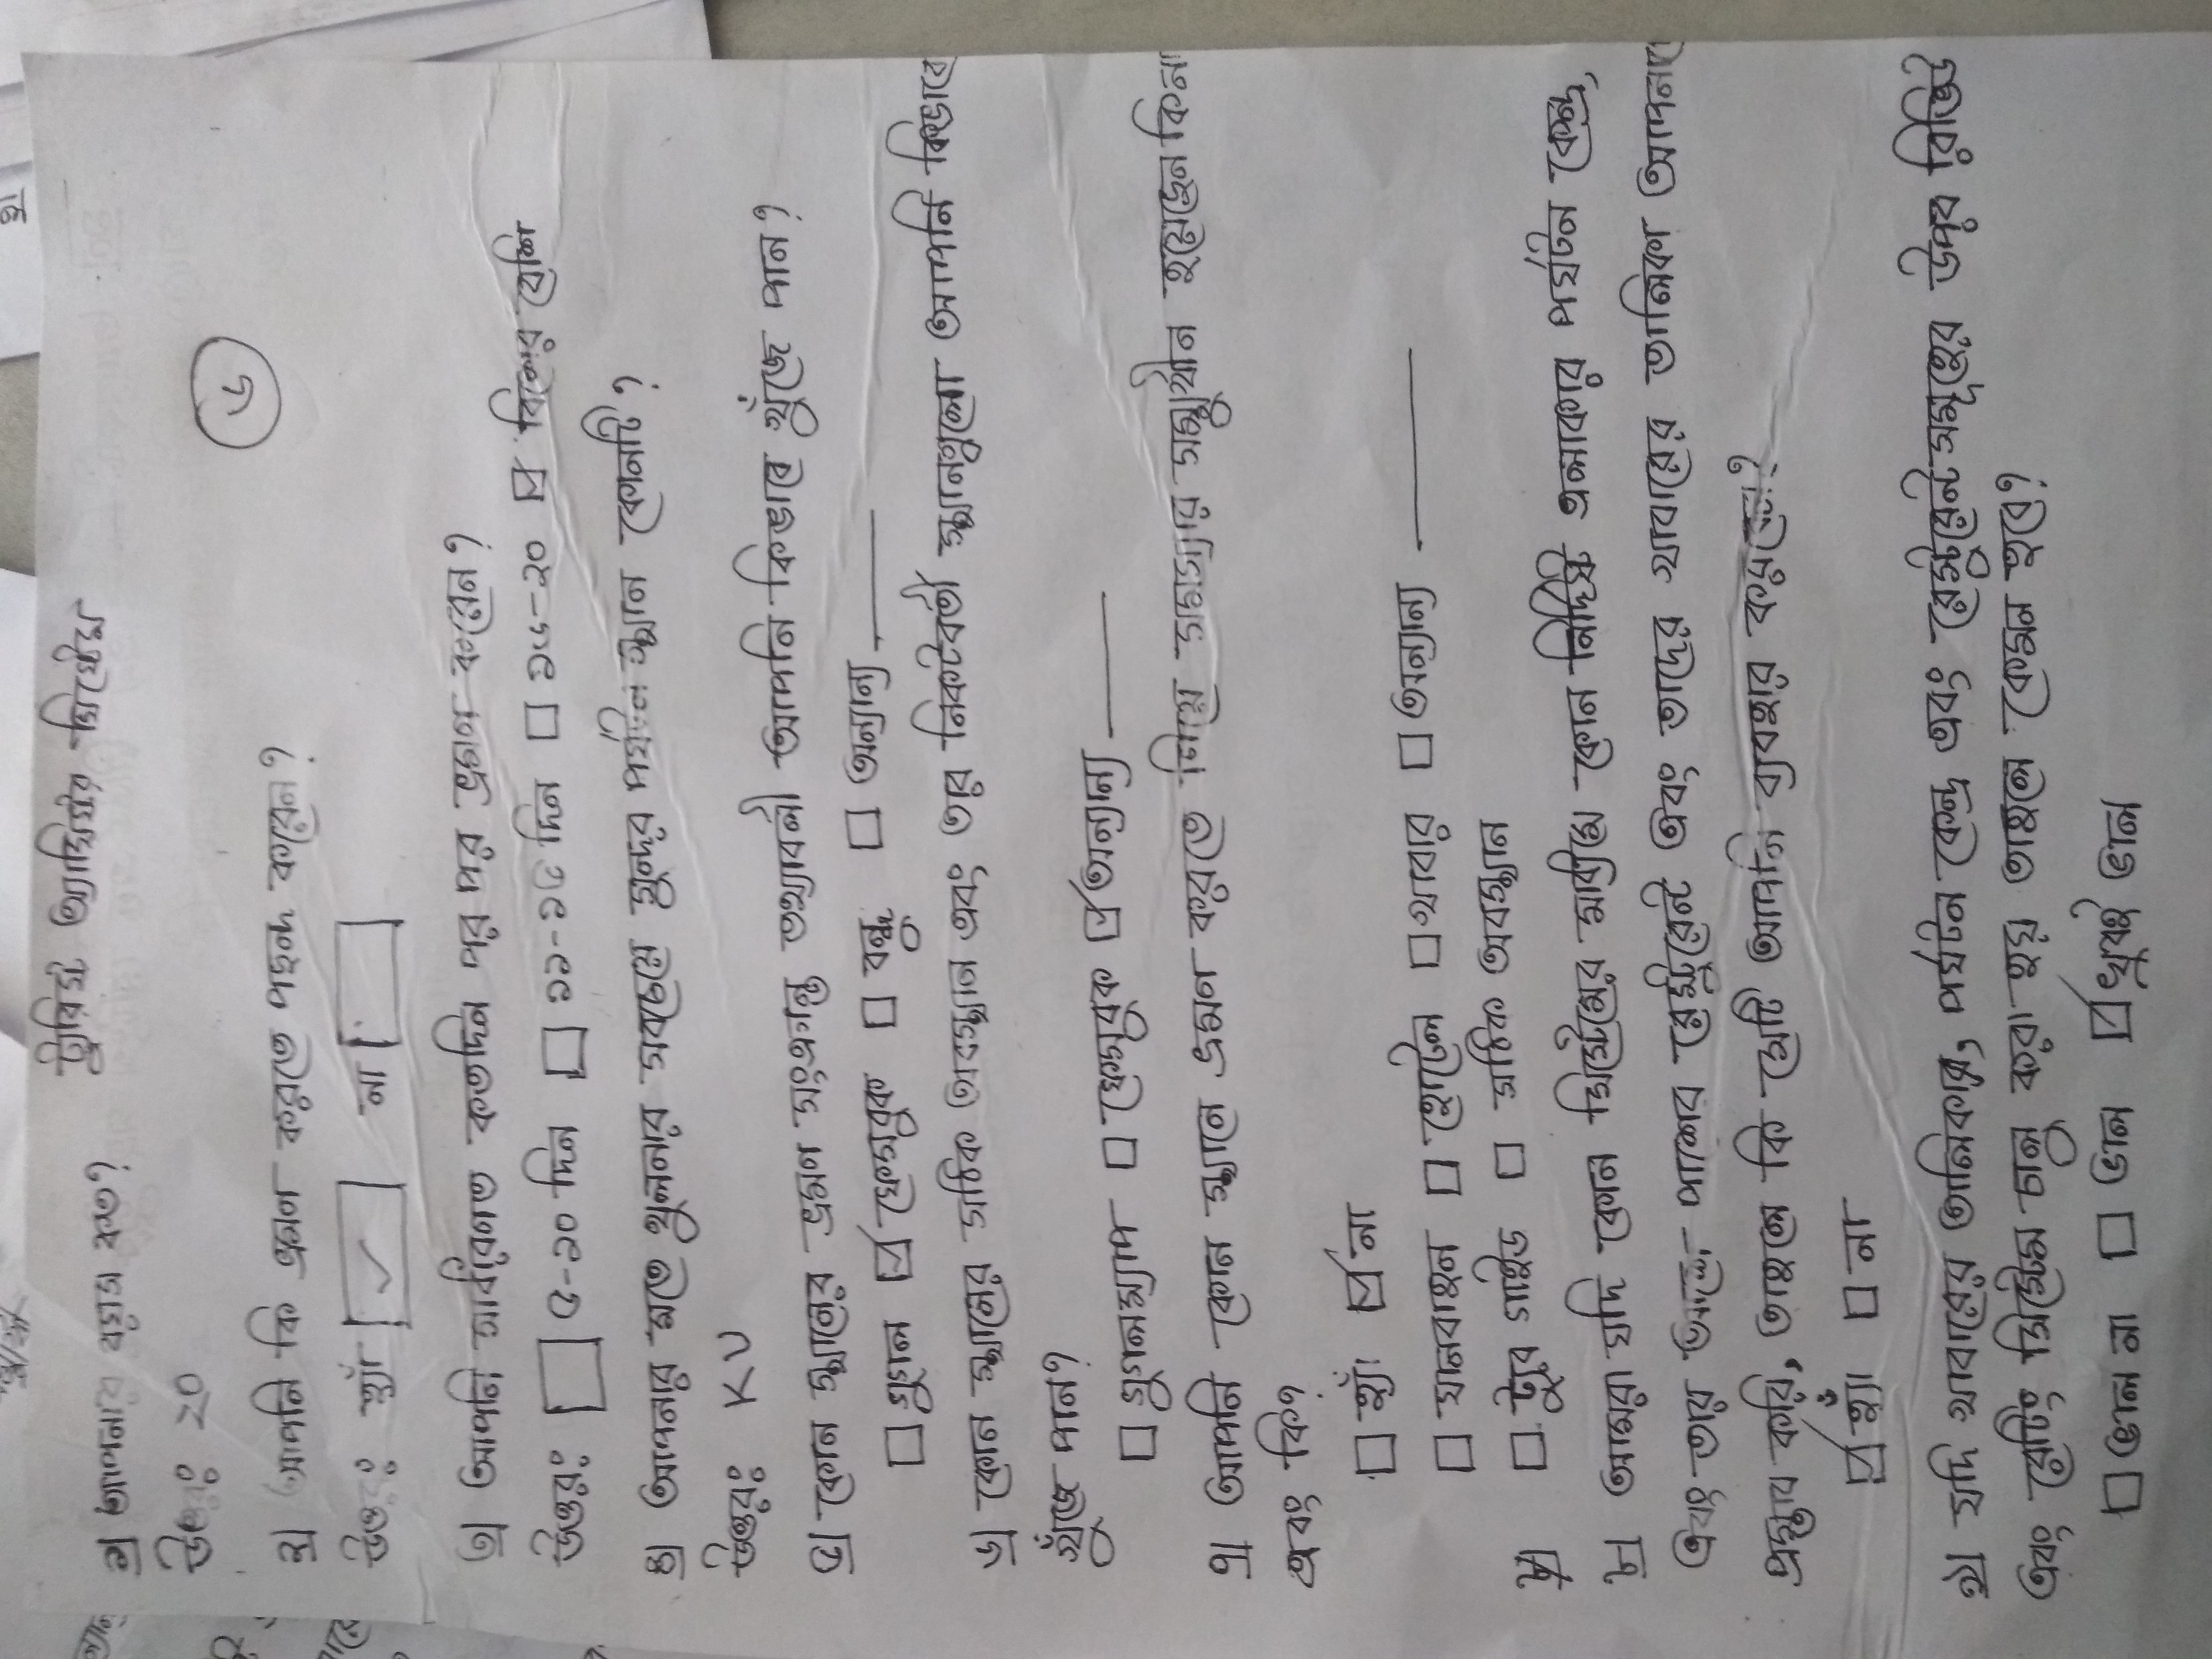 ট্যুরিস্ট অ্যাসিস্ট্যান্ট সিস্টেম
৬
১) আপনার বয়স কত?
উত্তরঃ 20
২) আপনি কি ভ্রমণ করতে পছন্দ করেন?
উত্তরঃ হ্যাঁ ✓ না
৩) আপনি সার্বিকভাবে কতদিন পর পর ভ্রমণ করেন?
উত্তরঃ □ ৫-১০ দিন □ ১১-১৫ দিন □ ১৫-২০ ☑ বিশের বেশি
৪) আপনার মতে খুলনার সবচেয়ে সুন্দর পর্যটন স্থান কোনটি?
উত্তরঃ KU
৫) কোন স্থানের ভ্রমণ সংক্রান্ত তথ্যাবলী আপনি কিভাবে খুঁজে পান?
□ গুগল ☑ ফেসবুক □ বন্ধু □ অন্যান্য ______
৬) কোন স্থানের সঠিক অবস্থান এবং তার নিকটবর্তী স্থানগুলো আপনি কিভাবে
খুঁজে পান?
□ গুগলম্যাপ □ ফেসবুক ☑ অন্যান্য ______
৭) আপনি কোন স্থানে ভ্রমণ করতে গিয়ে সমস্যার সম্মুখীন হয়েছেন কিনা
এবং কি?
□ হ্যাঁ ☑ না
□ যানবাহন □ হোটেল □ খাবার □ অন্যান্য ______
□ ট্যুর গাইড □ সঠিক অবস্থান
৮) আমরা যদি কোন সিস্টেমের মাধ্যমে কোন নির্দিষ্ট এলাকার পর্যটন কেন্দ্র,
এবং তার আশে-পাশের রেস্টুরেন্ট এবং তাদের খাবারের তালিকা আপনাকে
প্রস্তাব করি, তাহলে কি সেটি আপনি ব্যবহার করবেন?
☑ হ্যাঁ □ না
৯) যদি খাবারের তালিকায়, পর্যটন কেন্দ্র এবং রেস্টুরেন্টসমূহের উপর রিভিউ
এবং রেটিং সিস্টেম চালু করা হয় তাহলে কেমন হবে?
□ ভাল না □ ভাল ☑ খুবই ভাল